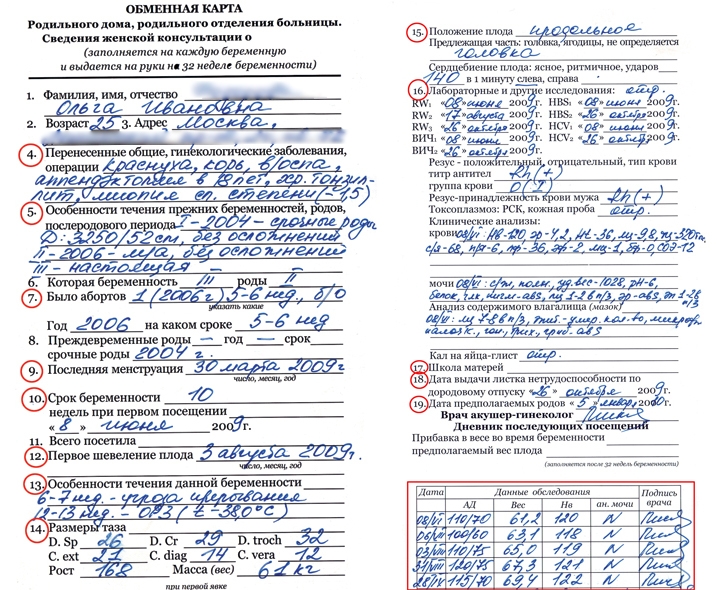 ОБМЕННАЯ КАРТА
Родильного дома, родильного отделения больницы.
Сведения женской консультации о
(заполняется на каждую беременную
и выдается на руки на 32 неделе беременности)
1. Фамилия, имя, отчество
Ольга Ивановна
2. Возраст 25 3. Адрес Москва,
4. Перенесенные общие, гинекологические заболевания,
операции краснуха, корь, в/оспа,
аппендэктомия в 12 лет, хр. тонзил-
лит, миопия сл. степени (-1,5)
5. Особенности течения прежних беременностей, родов,
послеродового периода I - 2004 - срочные роды
Д: 3250/52см, без осложнений
II - 2006 - м/а, без осложнений
III - настоящая
6. Которая беременность III роды II
7. Было абортов 1 (2006 г) 5-6 нед., б/о
указать какие
Год 2006 на каком сроке 5-6 нед
8. Преждевременные роды — год — срок
срочные роды 2004 г.
9. Последняя менструация 30 марта 2009 г
число, месяц, год
10. Срок беременности 10
недель при первом посещении
« 8 » июня 2009г.
11. Всего посетила
12. Первое шевеление плода 3 августа 2009г.
число, месяц, год
13. Особенности течения данной беременности
6-7 нед. - угроза прерывания
12-13 нед. - ОРЗ (t - 38,0°C)
14. Размеры таза
D. Sp 26 D. Cr 29 D. troch 32
C. ext 21 C. diag 14 C. vera 12
Рост 168 Масса (вес) 61 кг
при первой явке
15. Положение плода продольное
Предлежащая часть: головка, ягодицы, не определяется
головка
Сердцебиение плода: ясное, ритмичное, ударов
140 в 1 минуту слева, справа
16. Лабораторные и другие исследования: отр.
RW₁ «08» июня 2009г. HBS₁ «08» июня 2009г.
RW₂ «17» августа 2009г. HBS₂ «26» октября 2009г.
RW₃ «26» октября 2009г. HCV₁ «08» июня 2009г.
ВИЧ₁ «08» июня 2009г. HCV₂ «26» октября 2009г.
ВИЧ₂ «26» октября 2009г.
Резус - положительный, отрицательный, тип крови
титр антител Rh(+)
группа крови 0(I)
Резус-принадлежность крови мужа Rh(+)
Токсоплазмоз: РСК, кожная проба отр.
Клинические анализы:
крови 08/VI: Нв-120, эр-4,2, Ht-36,
с/я-68, э-2, б-0, СОЭ-12
мочи 08/VI: с/ж, полн, уд.вес-1028, рН-6,
белок, abs, эр-abs,
Анализ содержимого влагалища (мазок)
08/VI: abs
Кал на яйца-глист отр.
17. Школа матерей
18. Дата выдачи листка нетрудоспособности по
дородовому отпуску «26» октября 2009г.
19. Дата предполагаемых родов « 5 » январ. 2010г.
Врач акушер-гинеколог
Дневник последующих посещений
Прибавка в весе во время беременности
предполагаемый вес плода
(заполняется после 32 недель беременности)
Дата Данные обследования Подпись врача
АД Вес Нв ан. мочи
08/VI 110/70 61,2 120 N
06/VII 100/60 63,1 118 N
03/VIII 110/75 65,0 119 N
31/VIII 120/75 67,3 121 N
115/70 69,4 122 N